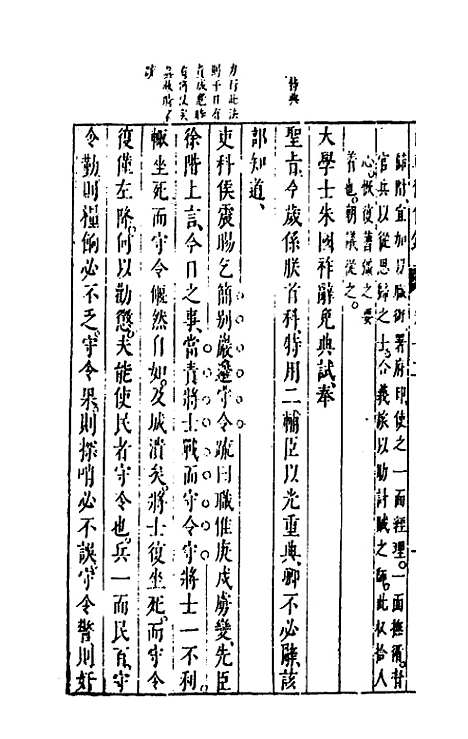 歸附宜加以職銜署府印使之一面經理一面撫循甘
官兵以從思歸之士合義旅以助討賊之師此收拾人
心恢復舊儀之要
着也朝議從之
大學士朱國祚辭免典試奉
聖旨今歲係朕首科特用二輔臣以光重典卿不必辭該
部知道
吏科侯震暘乞簡別嚴選守令疏曰職惟庚戌虜變先臣
徐階上言今日之事當責將士戰而守令守將士一不利
輒坐死而守令偃然自如及城潰矣將士復坐死而守令
復僅左降何以勸懲夫能使民者守令也兵一而民百守
令勤則糧餉必不乏守令果則探哨必不誤守令警則奸
特典
力行此法
則平日有